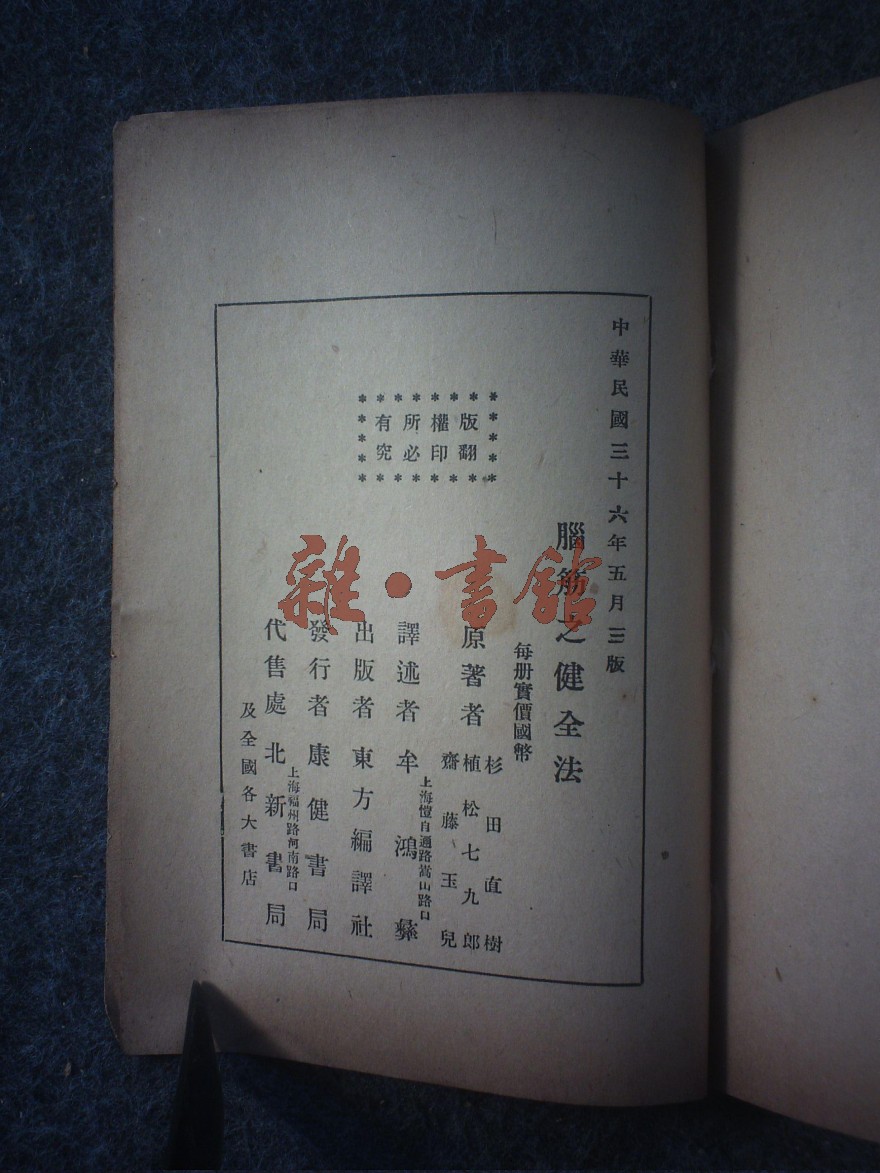 中華民國三十六年五月三版
腦筋之健全法
每册實價國幣
原著者
杉田直樹
植松七九郎
齋藤玉兒
譯述者 牟鴻彝
上海愷自邇路嵩山路口
出版者 東方編譯社
發行者 康健書局
上海福州路河南路口
代售處 北新書局
及全國各大書店
版權所有
翻印必究
雜·書館